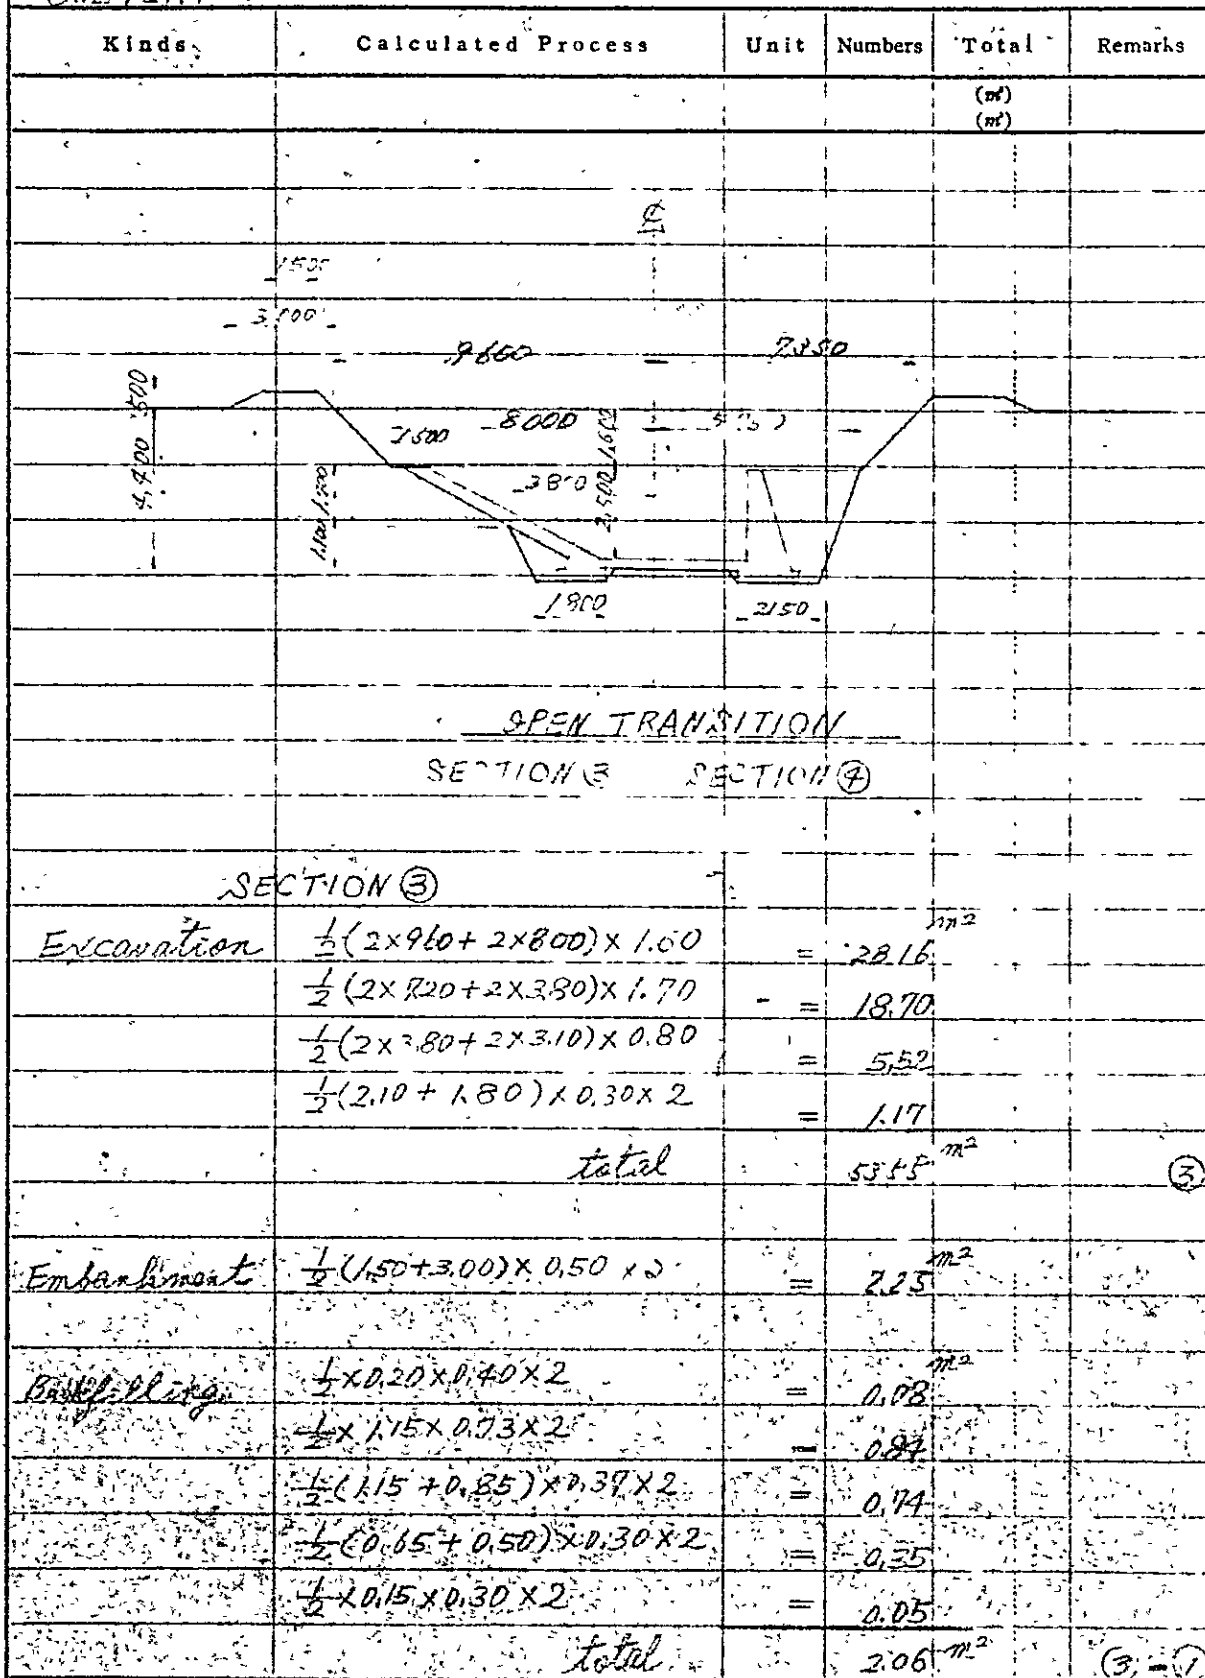 Kinds Calculated Process Unit Numbers Total Remarks
(㎥)
(㎡)
℄
1500
3,000
9600 7350
500
8000
1500
1,600
4,400
3800
2,500
1,100
1800 2150
OPEN TRANSITION
SECTION ③ SECTION ④
SECTION ③
Excavation ½(2×9.60+2×8.00)×1.60 = 28.16 m²
½(2×7.20+2×3.80)×1.70 = 18.70
½(2×3.80+2×3.10)×0.80 = 5.52
½(2.10+1.80)×0.30×2 = 1.17
total 53.55 m² ③
Embankment ½(1.50+3.00)×0.50×2 = 2.25 m²
Backfilling ½×0.20×0.40×2 = 0.08 m²
½×1.15×0.73×2 = 0.84
½(1.15+0.85)×0.37×2 = 0.74
½(0.65+0.50)×0.30×2 = 0.35
½×0.15×0.30×2 = 0.05
total 2.06 m² (3-1)